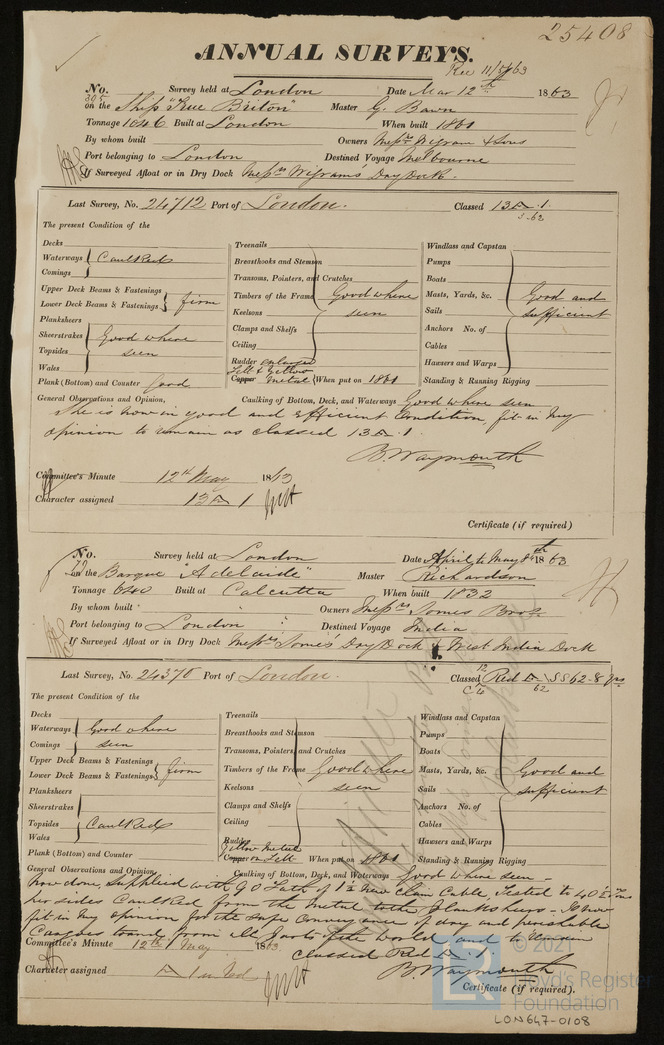 25408
ANNUAL SURVEYS.
Rec 11/5/63
No. 305 Survey held at London Date Mar 12th 1863
on the Ship "True Briton" Master G. Bawn
Tonnage 1046 Built at London When built 1861
By whom built Owners Messrs Wigram & Sons
Port belonging to London Destined Voyage Melbourne
If Surveyed Afloat or in Dry Dock Messrs Wigrams Dry Dock.
Last Survey, No. 24712 Port of London. Classed 13 A 1.
5.62
The present Condition of the
Decks
Waterways
Comings
Caulked
Upper Deck Beams & Fastenings
Lower Deck Beams & Fastenings
firm
Planksheers
Sheerstrakes
Topsides
Wales
Good where seen
Plank (Bottom) and Counter Good
Treenails
Breasthooks and Stemson
Transoms, Pointers, and Crutches
Timbers of the Frame
Keelsons
Clamps and Shelfs
Ceiling
Good where seen
Rudder enlarged
Felt & Yellow
Copper Metal When put on 1861
Windlass and Capstan
Pumps
Boats
Masts, Yards, &c.
Sails
Anchors No. of
Cables
Hawsers and Warps
Good and sufficient
Standing & Running Rigging
General Observations and Opinion, Caulking of Bottom, Deck, and Waterways Good where seen
She is now in good and efficient Condition, fit in my
opinion to remain as classed 13 A 1.
B. Waymouth
Committee's Minute 12th May 1863
Character assigned 13 A 1
Certificate (if required)
No. 70 Survey held at London Date April to May 8th 1863
on the Barque "Adelaide" Master Richardson
Tonnage 640 Built at Calcutta When built 1832
By whom built " Owners Messrs Somes Bros.
Port belonging to London " Destined Voyage India
If Surveyed Afloat or in Dry Dock Messrs Somes' Dry Dock & West India Dock
Last Survey, No. 24378 Port of London. Classed Red A SS 62-8 yrs
The present Condition of the
Decks
Waterways
Comings
Good where seen
Upper Deck Beams & Fastenings
Lower Deck Beams & Fastenings
firm
Planksheers
Sheerstrakes
Topsides
Wales
Caulked
Plank (Bottom) and Counter
Treenails
Breasthooks and Stemson
Transoms, Pointers, and Crutches
Timbers of the Frame
Keelsons
Clamps and Shelfs
Ceiling
Good where seen
Rudder
Yellow Metal
Copper on Felt When put on 1861
Windlass and Capstan
Pumps
Boats
Masts, Yards, &c.
Sails
Anchors No. of
Cables
Hawsers and Warps
Good and sufficient
Standing & Running Rigging
General Observations and Opinion, Caulking of Bottom, Deck, and Waterways Good where seen -
now done, supplied with 90 Fath of 1½ new Chain Cable, Tested to 40½ Tons
her sides Caulked from the metal to the planksheers - Is now
fit in my opinion for the safe Conveyance of dry and perishable
Cargoes to and from all parts of the world and to remain
classed Red A. 1
B. Waymouth
Committee's Minute 12th May 1863
Character assigned A 1 in Red
Certificate (if required).
© 2021
Lloyd's Register
Foundation
LON647-0108